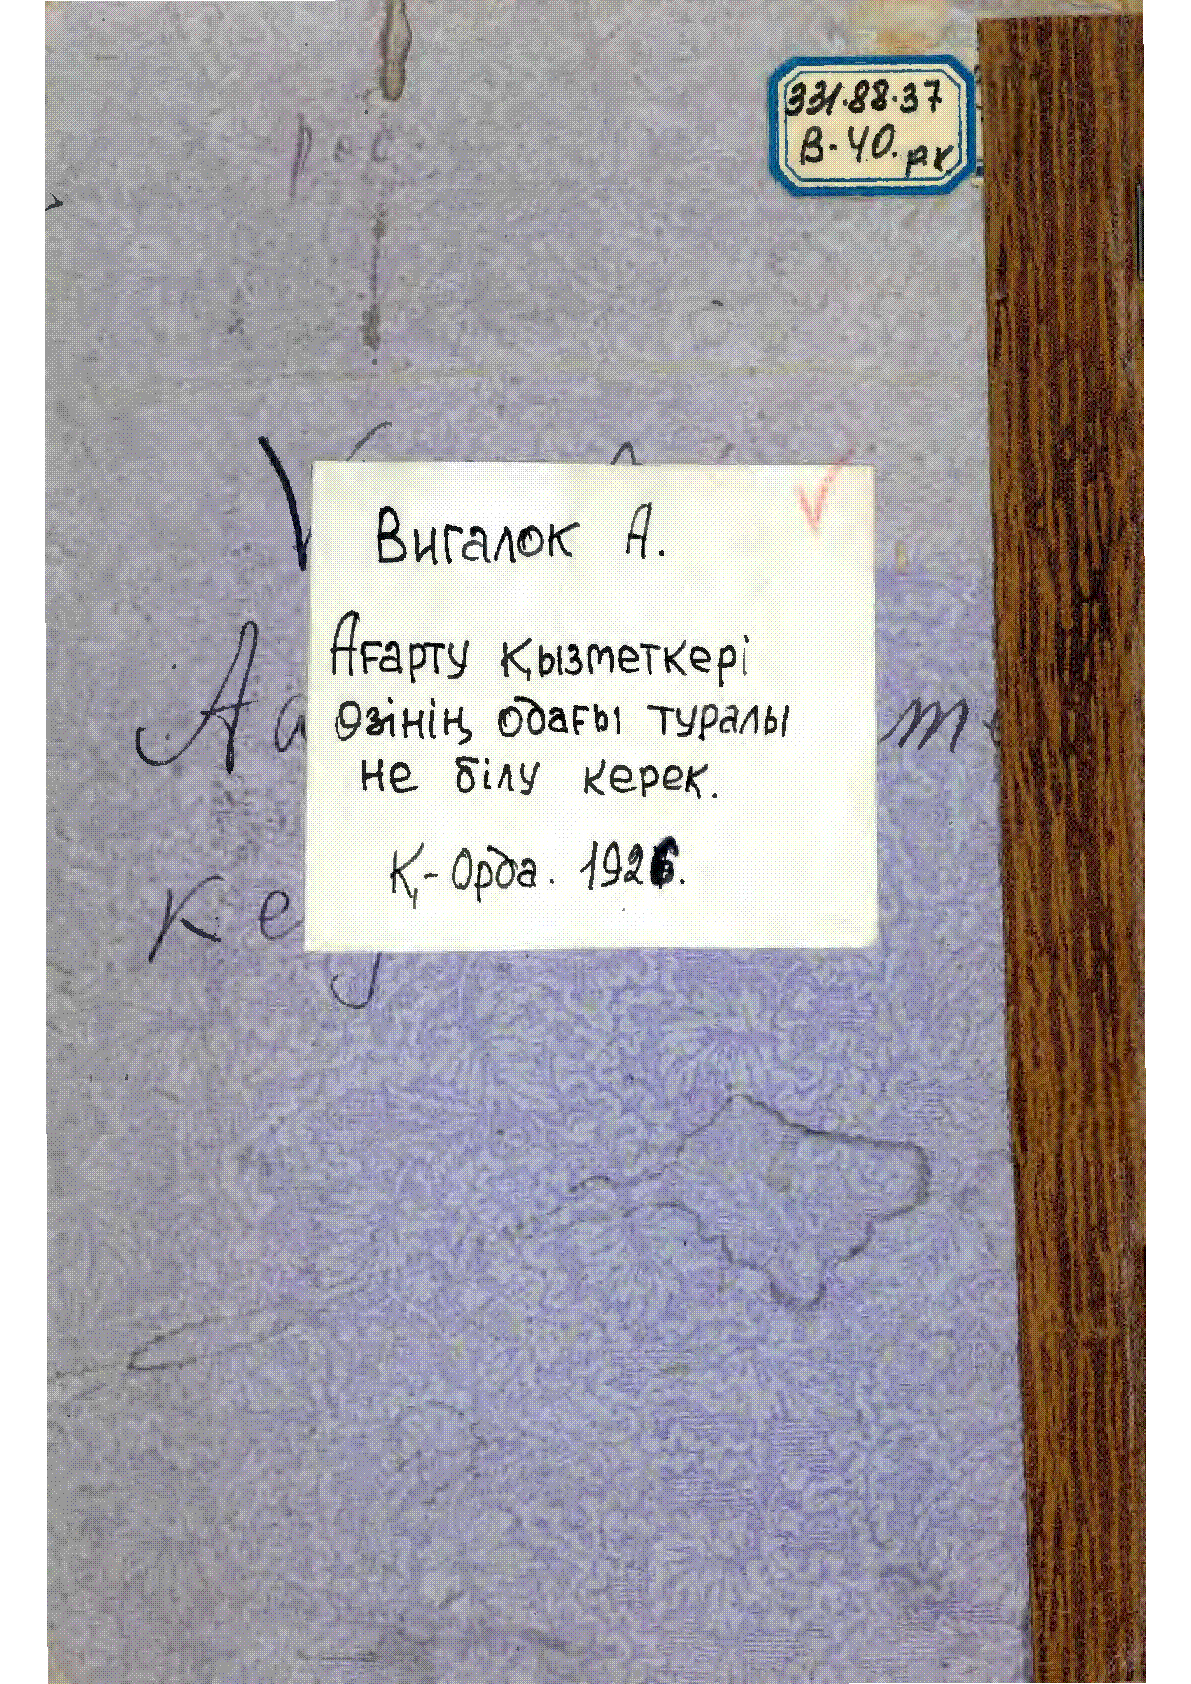 331.88.37
В-40. рк
Вигалок А.
Ағарту қызметкері
өзінің одағы туралы
не білу керек.
Қ-Орда. 1926.